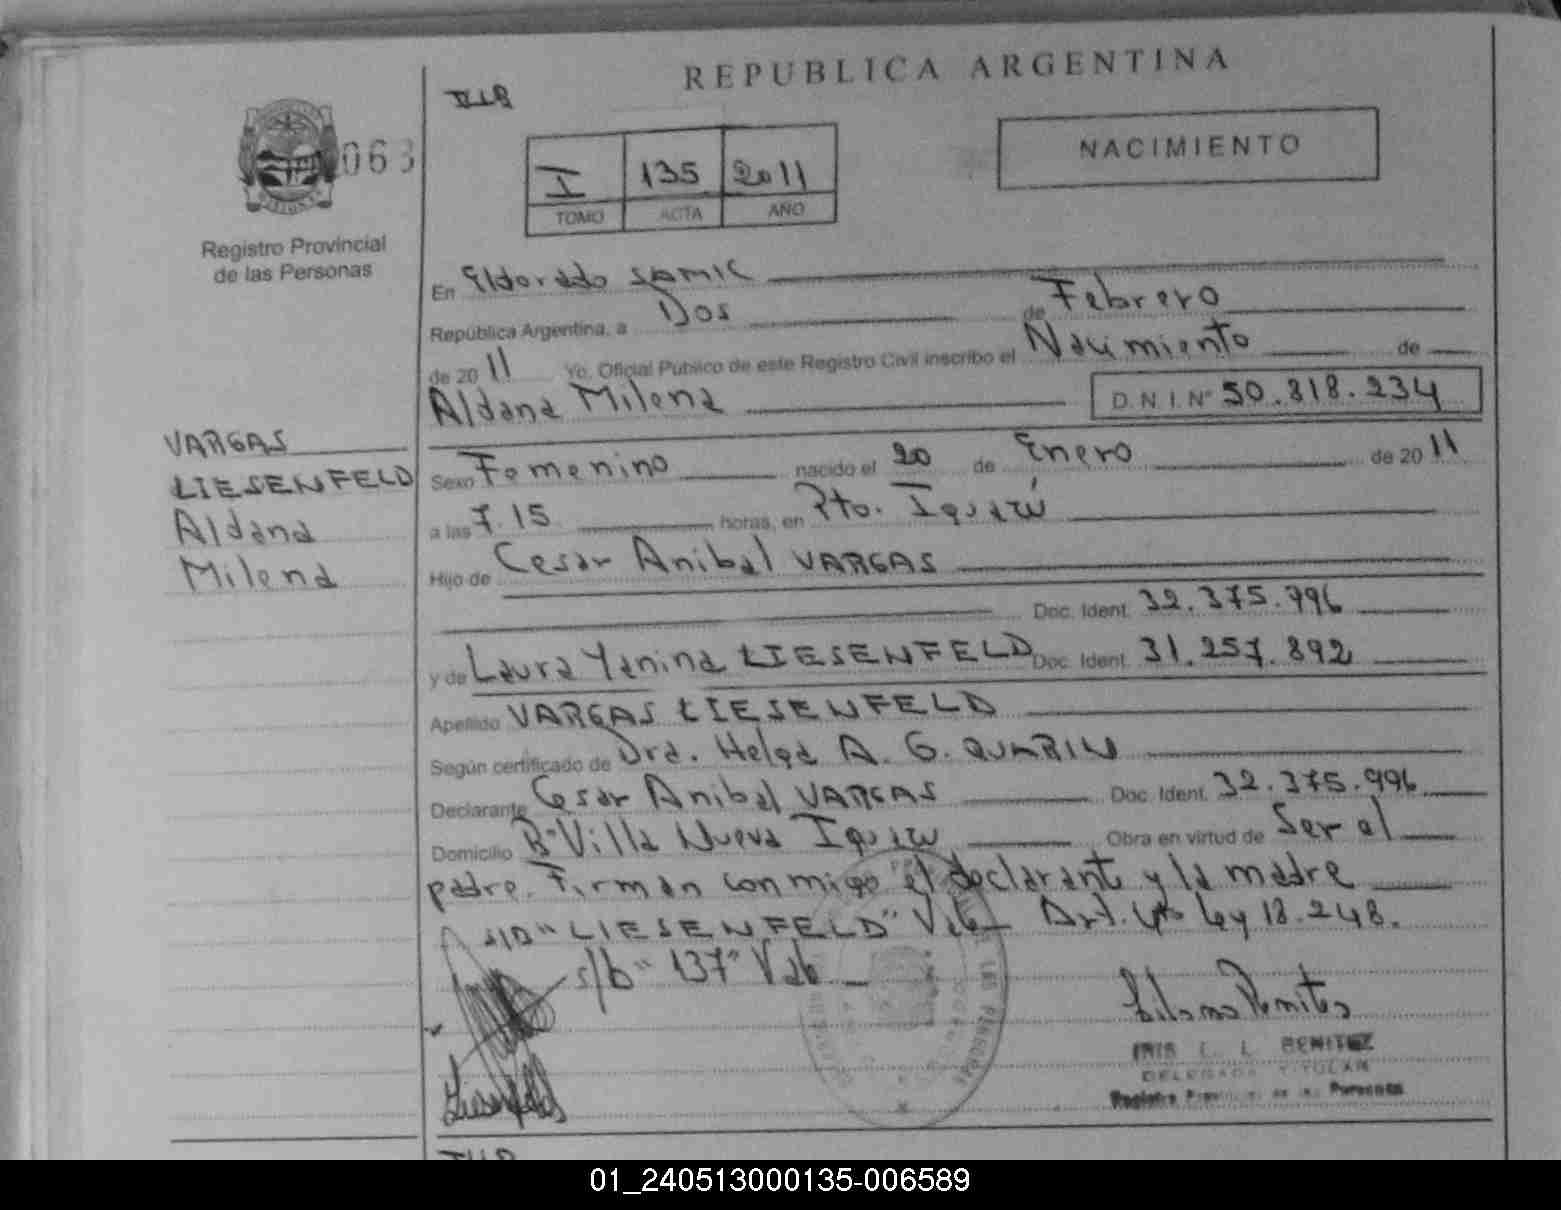 REPUBLICA ARGENTINA
063
I 135 2011
TOMO ACTA AÑO
NACIMIENTO
Registro Provincial
de las Personas
En Eldorado SAMIC
República Argentina, a Dos de Febrero
de 2011 Yo, Oficial Público de este Registro Civil inscribo el Nacimiento de
Aldana Milena D.N.I. Nº 50.818.234
VARGAS
LIESENFELD
Aldana
Milena
Sexo Femenino nacido el 20 de Enero de 2011
a las 7.15 horas, en Pto. Iguazú
Hijo de Cesar Anibal VARGAS
Doc. Ident. 32.375.996
y de Laura Yanina LIESENFELD Doc. Ident. 31.257.892
Apellido VARGAS LIESENFELD
Según certificado de Dra. Helga A. G. QUARIN
Declarante Cesar Anibal VARGAS Doc. Ident. 32.375.996
Domicilio Bº Villa Nueva Iguazu Obra en virtud de Ser el
padre. Firman conmigo el declarante y la madre
S/B "LIESENFELD" Vale Art. 4to ley 18.248.
s/b "137" Vale
IRIS L. L. BENITEZ
DELEGADA TITULAR
Registro Provincial de las Personas
01_240513000135-006589